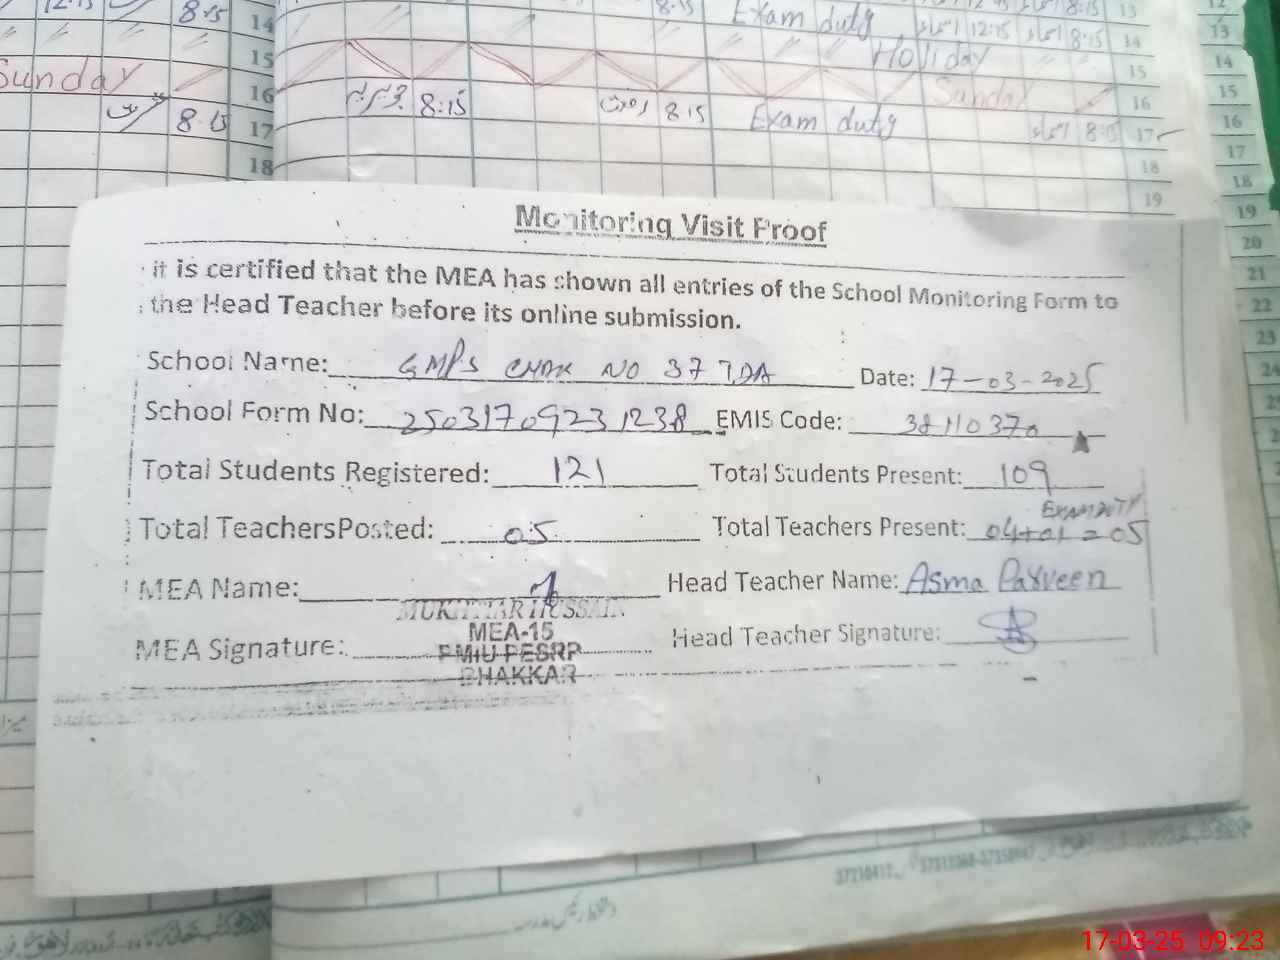 12:15 8:15 14 8:15 Exam duty 12:15 8:15 13
Holiday 14
15 15 14
Sunday 16 Sunday 16 15
8:15 17 8:15 8:15 Exam duty 8:15 17 16
18 18 17
19 18
19
20
21
22
23
24
Monitoring Visit Proof
it is certified that the MEA has shown all entries of the School Monitoring Form to
the Head Teacher before its online submission.
School Name: GMPS CHAK NO 37 TDA Date: 17-03-2025
School Form No: 25031709231238 EMIS Code: 38110370
Total Students Registered: 121 Total Students Present: 109
EXAM DUTY
Total Teachers Posted: 05 Total Teachers Present: 04+01=05
MEA Name: Head Teacher Name: Asma Parveen
MUKHTIAR HUSSAIN
MEA-15
MEA Signature: PMIU PESRP Head Teacher Signature:
BHAKKAR
17-03-25 09:23